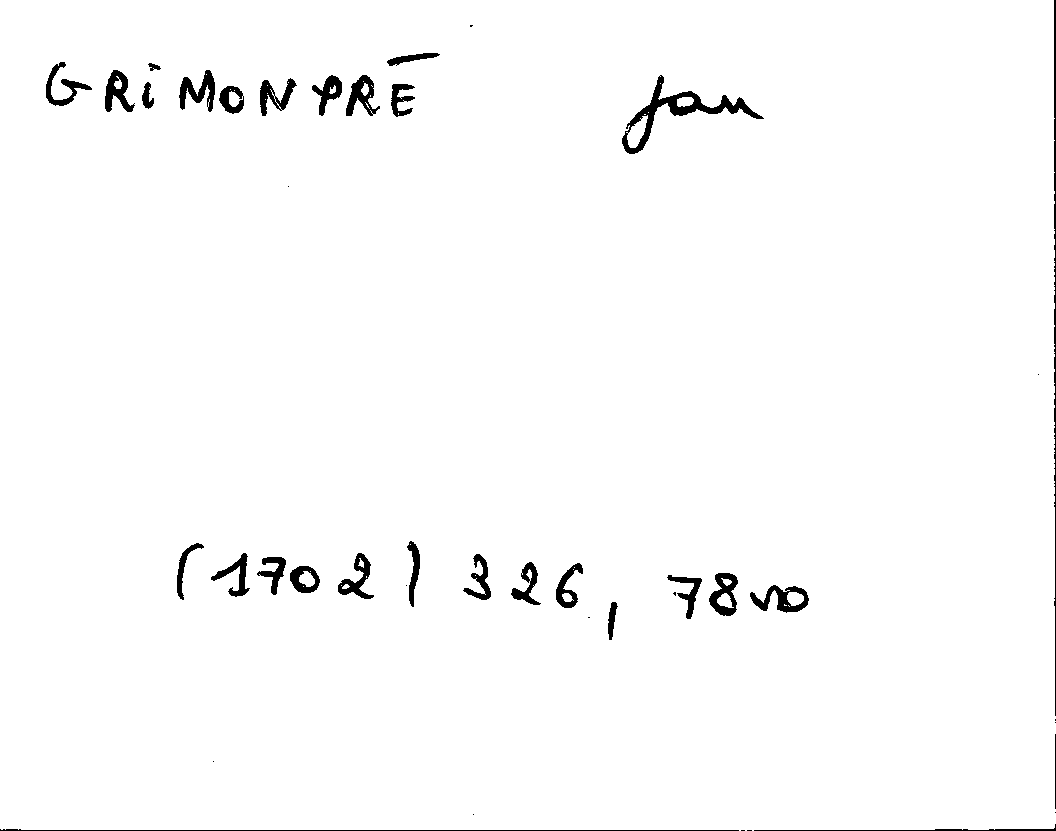 GRIMONPRÉ Jan
(1702) 326, 78vo